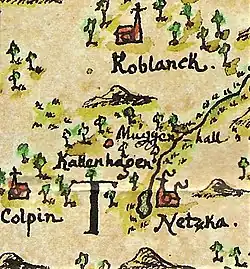 Koblanck.
Muggen hall
Kattenhagen
T
Colpin
Netzka.